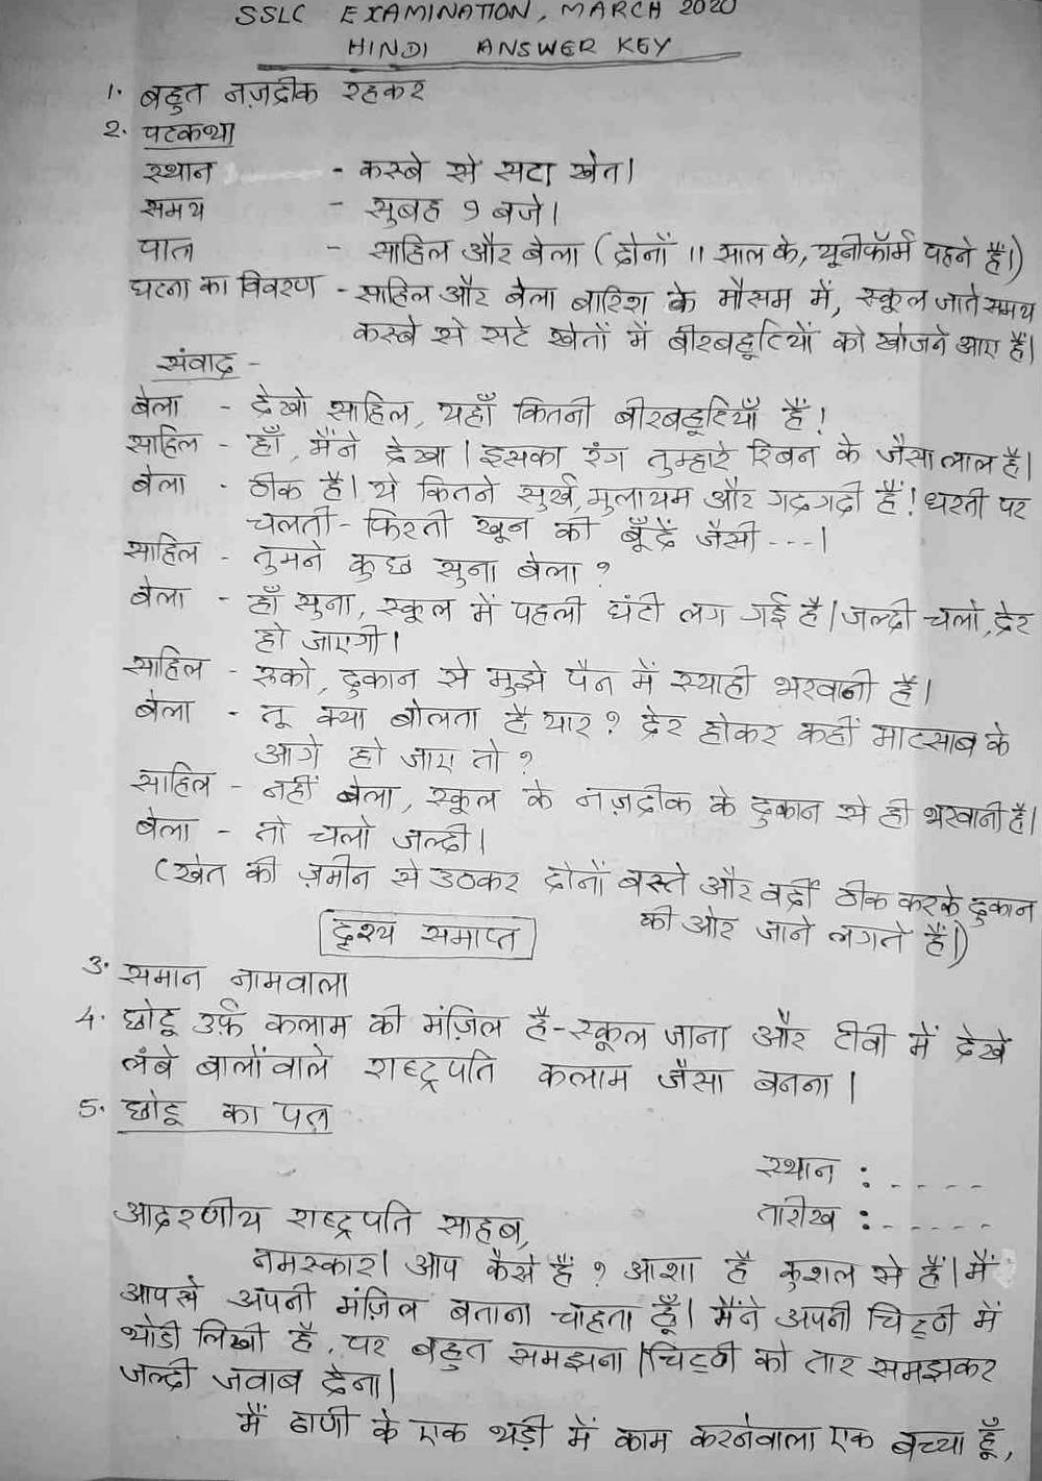 SSLC EXAMINATION, MARCH 2020
HINDI ANSWER KEY
1. बहुत नज़दीक रहकर
2. पटकथा
स्थान - कस्बे से सटा खेत।
समय - सुबह 9 बजे।
पात्र - साहिल और बेला (दोनों 11 साल के, यूनीफॉर्म पहने हैं।)
घटना का विवरण - साहिल और बेला बारिश के मौसम में, स्कूल जाते समय
कस्बे से सटे खेतों में बीरबहूटियों को खोजने आए हैं।
संवाद -
बेला - देखो साहिल, यहाँ कितनी बीरबहूटियाँ हैं!
साहिल - हाँ, मैंने देखा। इसका रंग तुम्हारे रिबन के जैसा लाल है।
बेला - ठीक है। ये कितने सुर्ख, मुलायम और गदगदी हैं! धरती पर
चलती-फिरती खून की बूँदें जैसी ---।
साहिल - तुमने कुछ सुना बेला?
बेला - हाँ सुना, स्कूल में पहली घंटी लग गई है। जल्दी चलो, देर
हो जाएगी।
साहिल - रुको, दुकान से मुझे पैन में स्याही भरवानी है।
बेला - तू क्या बोलता है यार? देर होकर कहीं माटसाब के
आगे हो जाए तो?
साहिल - नहीं बेला, स्कूल के नज़दीक के दुकान से ही भरवानी है।
बेला - तो चलो जल्दी।
(खेत की ज़मीन से उठकर दोनों बस्ते और वर्दी ठीक करके दुकान
की ओर जाने लगते हैं।)
दृश्य समाप्त
3. समान नामवाला
4. छोटू उर्फ़ कलाम की मंज़िल है-स्कूल जाना और टीवी में देखे
लंबे बालोंवाले राष्ट्रपति कलाम जैसा बनना।
5. छोटू का पत्र
स्थान : - - - - -
तारीख : - - - - -
आदरणीय राष्ट्रपति साहब,
नमस्कार। आप कैसे हैं? आशा है कुशल से हैं। मैं
आपसे अपनी मंज़िल बताना चाहता हूँ। मैंने अपनी चिट्ठी में
थोडी लिखी है, पर बहुत समझना। चिट्ठी को तार समझकर
जल्दी जवाब देना।
मैं ढाणी के एक थड़ी में काम करनेवाला एक बच्चा हूँ,